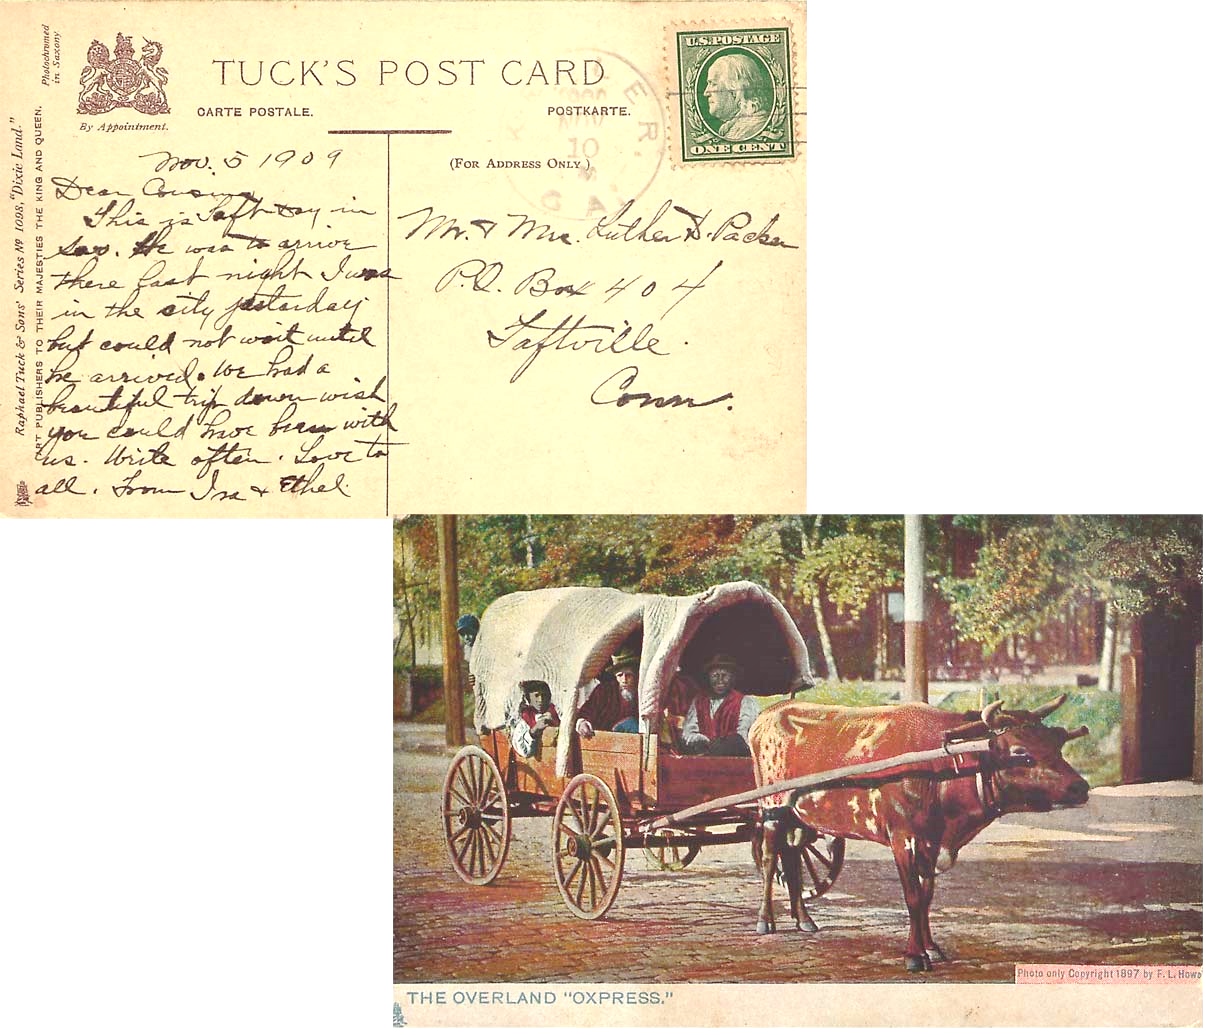 Photochromed
in Saxony
By Appointment.
TUCK'S POST CARD
CARTE POSTALE.
POSTKARTE.
(FOR ADDRESS ONLY)
U.S. POSTAGE
ONE CENT
NOV
10
Raphael Tuck & Sons' Series No 1098, "Dixie Land."
ART PUBLISHERS TO THEIR MAJESTIES THE KING AND QUEEN.
Nov. 5 1909
Dear Cousins
This is Taft day in
Sav. He was to arrive
there last night I was
in the city yestarday
but could not wait until
he arrived. We had a
beautiful trip down wish
you could have been with
us. Write often. Love to
all. From Ira & Ethel.
Mr. & Mrs. Luther D. Packer
P.O. Box 404
Taftville.
Conn.
Photo only Copyright 1897 by F. L. Howe
THE OVERLAND "OXPRESS."